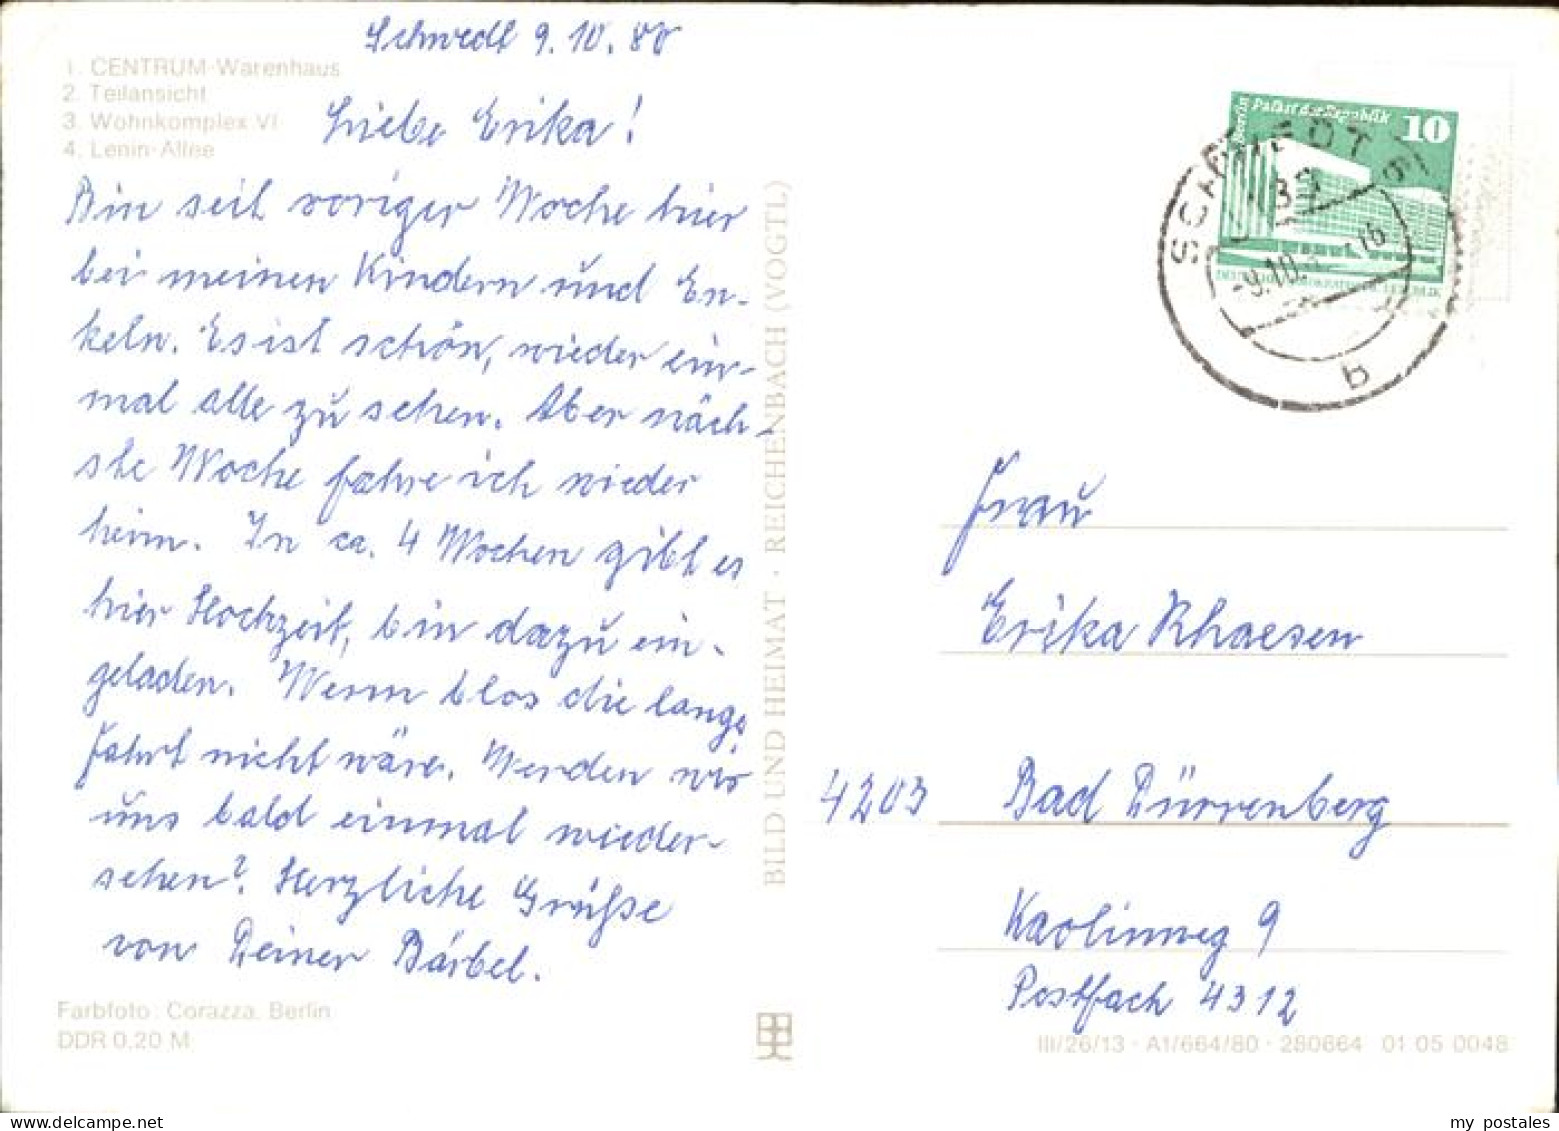 Schwedt 9.10.80
1. CENTRUM-Warenhaus
2. Teilansicht
3. Wohnkomplex VI
4. Lenin-Allee
Liebe Erika!
Bin seit voriger Woche hier
bei meinen Kindern und En-
keln. Es ist schön, wieder ein-
mal alle zu sehen. Aber näch-
ste Woche fahre ich wieder
heim. In ca. 4 Wochen gibt es
hier Hochzeit, bin dazu ein-
geladen. Wenn blos die lange
Fahrt nicht wäre. Werden wir
uns bald einmal wieder-
sehen? Herzliche Grüße
von Deiner Bärbel.
Farbfoto: Corazza, Berlin
DDR 0,20 M
BILD UND HEIMAT · REICHENBACH (VOGTL)
Berlin Palast der Republik
10
DEUTSCHE DEMOKRATISCHE REPUBLIK
SCHWEDT
-9.10.
b
Frau
Erika Rhaesen
4203 Bad Dürrenberg
Kaolinweg 9
Postfach 4312
III/26/13 · A1/664/80 · 280664 01 05 0048
my postales